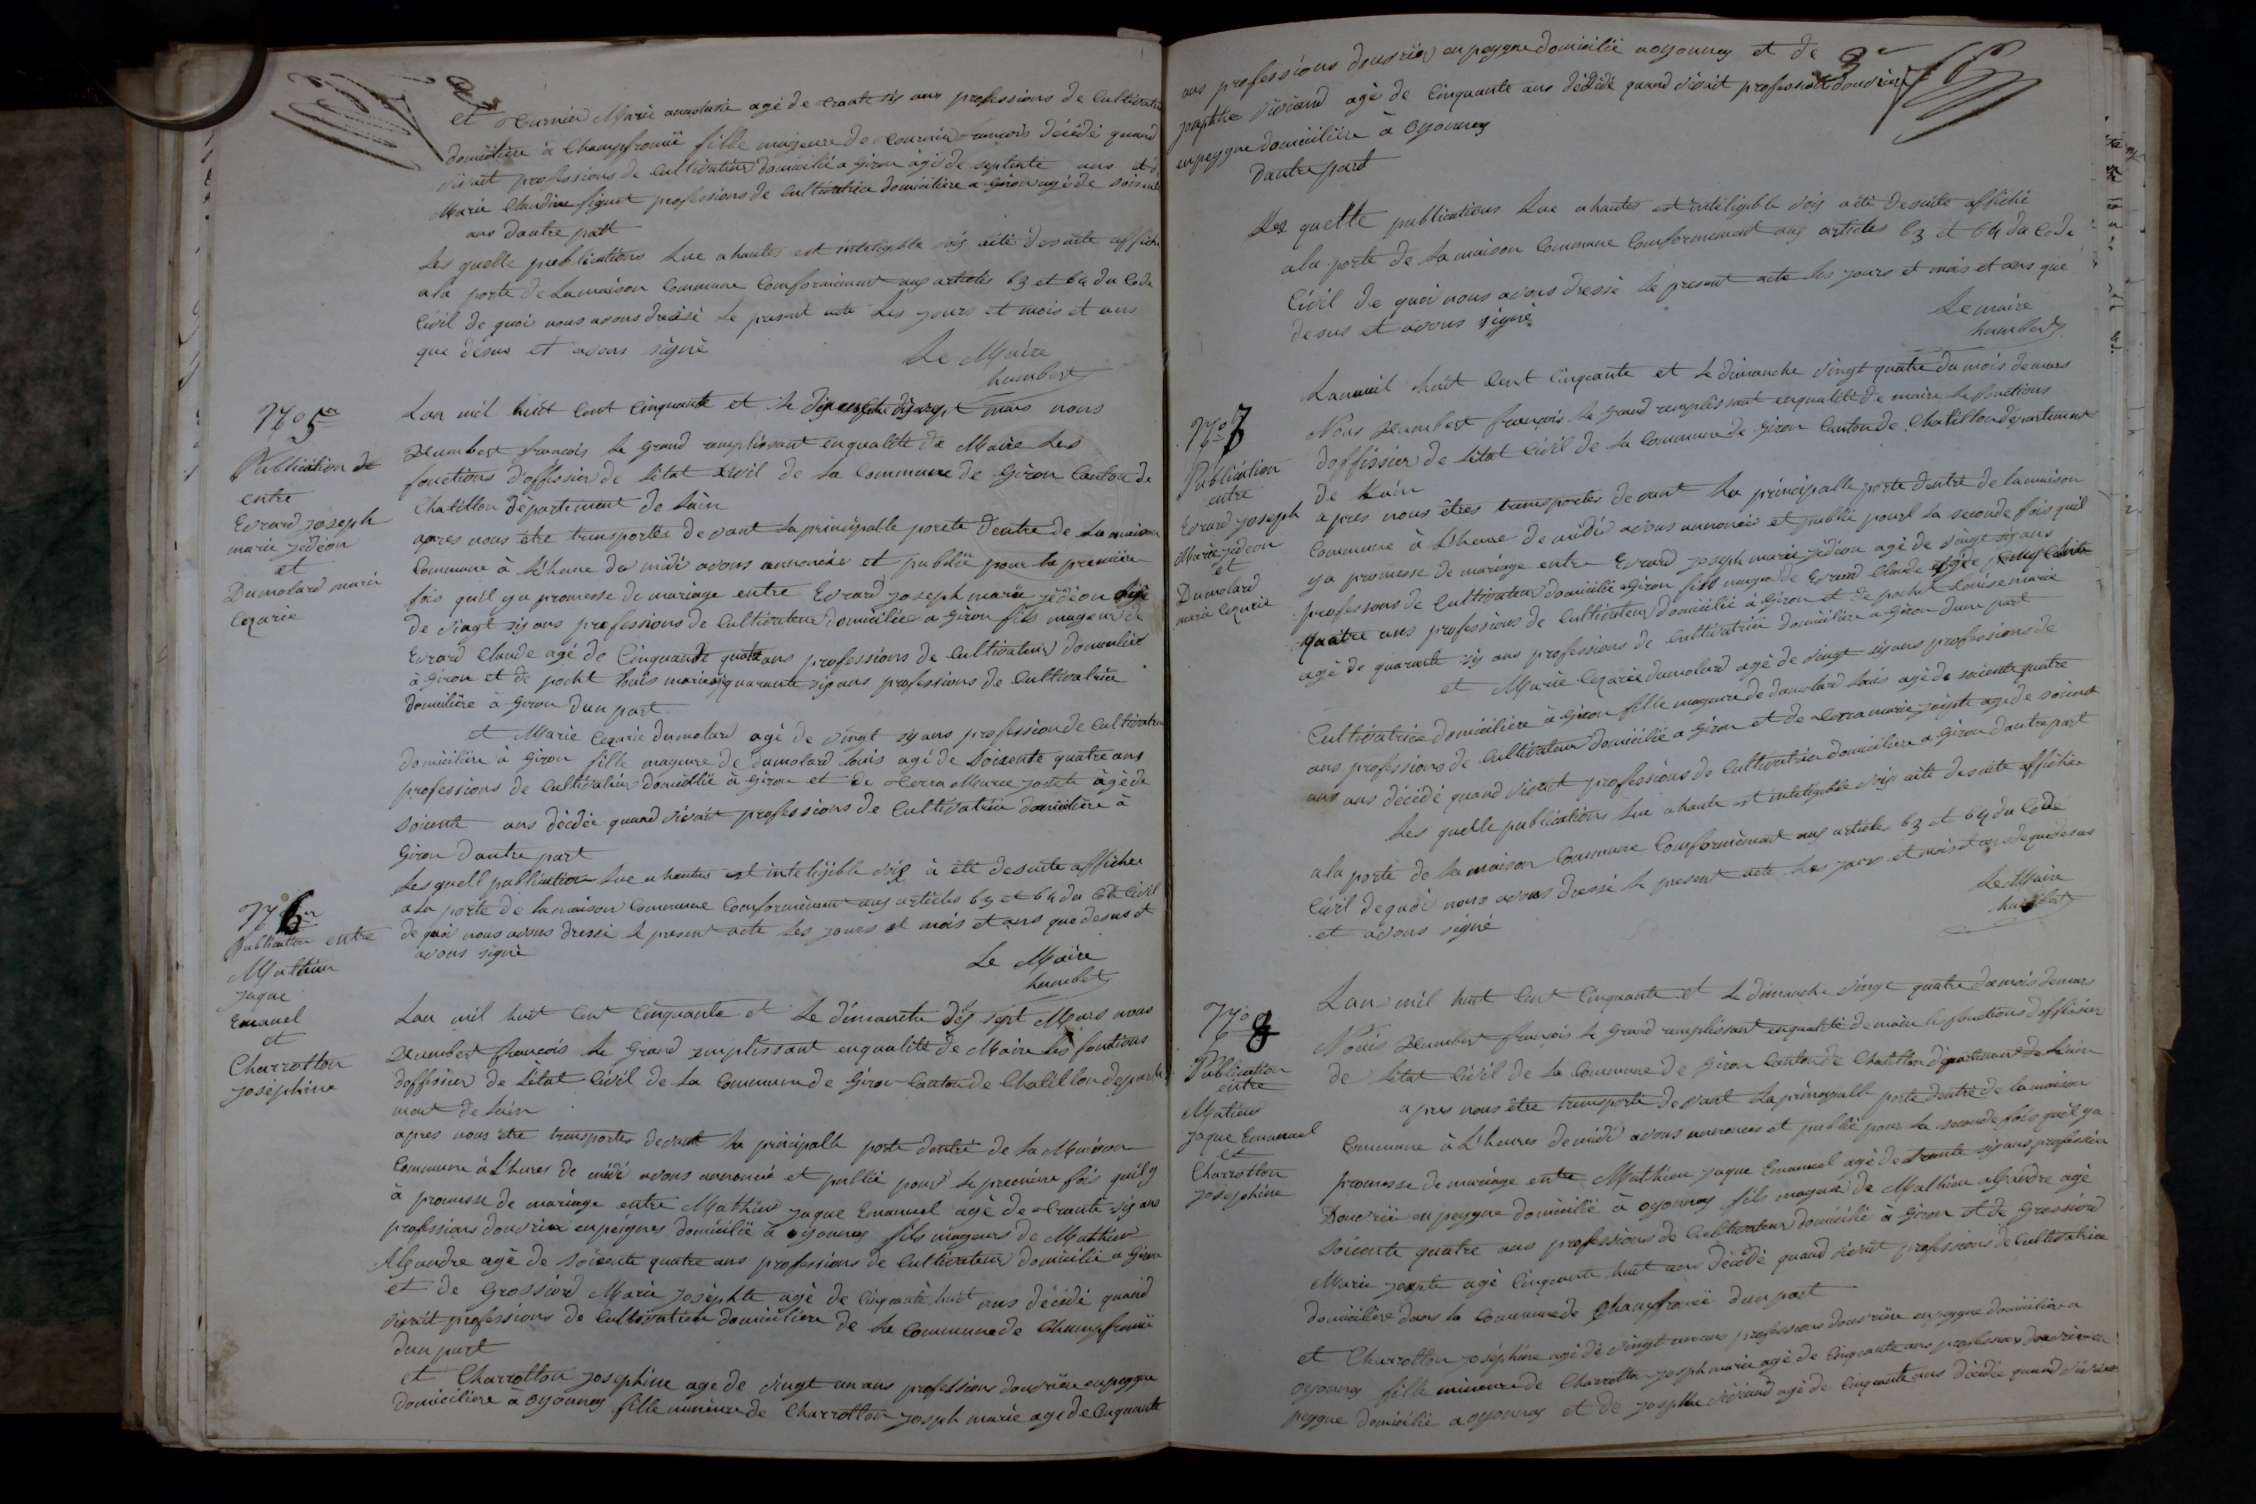 et Tournier Marie anastasie agé de trante six ans professions de Cultivatrice
domicilière à Champfromié fille majeure de Tournier francois décédé quand
vivait professions de Cultivateur domicilié a Giron agé de septente ans et de
Marie Claudine figuet professions de Cultivatrice domicilière a Giron agé de soixente
ans dautre part
Les quelle publications Lue a hautes est inteligible voix aété desuite affiché
ala porte de La maison Commune Conformément aux articles 63 et 64 du Code
Civil de quoi nous avons dressé Le present acte Les jours et mois et ans
que desus et avons signé
Le Maire
humbert
N° 5
Publication de
entre
Evrard joseph
marie jédéon
et
Dumolard marie
Cezarie
Lan mil huit Cent Cinquante et le dimanche dix sept mars nous
Humbert francois Le Grand remplissant enqualité de Maire Les
fonctions d'offisier de Létat Civil de La Commune de Giron Canton de
Chatillon département de Lain
apres nous être transportes devant La principalle porte dentre de La maison
Commune à Lheure de midi avons annoncée et publié pour la première
fois quil ya promesse de mariage entre Evrard joseph marie jédéon agé
de vingt six ans professions de Cultivateur domiciliée a Giron fils mageur de
Evrard Claude agé de Cinquante quatre ans professions de Cultivateur domicilié
à Giron et de pochet Louis marie quarante six ans professions de Cultivatrice
domicilière à Giron dun part
et Marie Cezarie dumolard agé de vingt six ans profession de Cultivatrice
domicilière à Giron fille mageure de dumolard Louis agé de Soixente quatre ans
professions de Cultivateur domicilié à Giron et de Perra Marie josete âgé de
soixente ans décédée quand vivait professions de Cultivatrice domicilière à
Giron dautre part
Les quell publication Lue a hautes est inteligible voix à été desuite affichée
a La porte de La maison Commune Conformément aux articles 63 et 64 du Code Civil
de quoi nous avons dressé Le present acte Les jours et mois et ans que desus et
avons signé
Le Maire
humbert
N° 6
Publication entre
Mathieu
jaque
Emanuel
et
Charrotton
joséphine
Lan mil huit Cent Cinquante et Le dimanche dix sept Mars nous
Humbert francois Le Grand remplissant enqualité de Maire Les fonctions
doffisier de Létat Civil de La Commune de Giron Canton de Chatillon departe
ment de Lain
apres nous être transportes devant La principalle porte dentré de La Maison
Commune à L'heures de midi avons annoncé et publié pour Le première fois quil y
à promesse de mariage entre Mathieu jaque Emanuel agé de trante six ans
professions douvrier enpeignes domicilié à oyonnax fils mageurs de Mathieu
Alexandre agé de soixente quatre ans professions de Cultivateur domicilié a Giron
et de Grossiord Marie josephte agé de Cinquante huit ans décédé quand
vivait professions de Cultivatrice domicilière de La Commune de Champfromié
dun part
et Charrotton josephine age de vingt un ans professions douvrière enpeygne
domicilière à oyonnax fille mineure de Charrotton joseph marie age de Cinquante
3e
ans professions douvrier enpeygne domicilié aoyonnax et de
josephte vivient agé de Cinquante ans décédé quand vivait professions douvrière
enpeygne domicilière à Oyonnax
Dautre part
Les quelle publications Lue a hautes est inteligible voix aété desuite affiché
ala porte de La maison Commune Conformement aux articles 63 et 64 du Code
Civil de quoi nous avons dressé Le present acte Les jours et mois et ans que
desus et avons signé
Le maire
humbert
N° 7
Publication
entre
Evrard joseph
Marie jédéon
et
Dumolard
marie Cezarie
Lanmil huit Cent Cinquante et Le dimanche vingt quatre du mois de mars
Nous Humbert francois Le Grand remplissant enqualité de maire Le fonctions
doffisier de Létat Civil de La Commune de Giron Canton de Chatillon département
de Lain
apres nous êtres transportes devant La principalle porte dentré de La maison
Commune à L'heure de midi avons annoncée et publié pour La seconde fois quil
ya promesse de mariage entre Evrard joseph marie jédéon agé de vingt six ans
professons de Cultivateur domicilié aGiron fils mageur de Evrard Claude agé de Cinquante
quatre ans professions de Cultivateur domicilié à Giron et de pochet Louise marie
agé de quarante six ans professions de Cultivatrice domicilière a Giron dune part
et Marie Cezarie dumolard agé de vingt six ans professions de
Cultivatrice domicilière à Giron fille mageure de dumolard Louis agé de soixente quatre
ans professions de Cultivateur domicilié a Giron et de Perra marie josete age de soixent
ans décédé quand vivait professions de Cultivatrice domiciliere a Giron dautre part
Les quelle publications Lue a haute est inteligible voix aété desuite affichée
a la porte de La maison Commune Conformément aux article 63 et 64 du Code
Civil de quoi nous avons dressé Le present acte Les jours et mois et ans dequedesus
et avons signé
Le Maire
humbert
N° 8
Publication
entre
Matieu
jaque Emanuel
et
Charrotton
josephine
Lan mil huit Cent Cinquante et Le dimanche vingt quatre du mois de mars
Nous Humbert francois Le Grand remplissant enqualité de maire Le fonctions doffisier
de Létat Civil de La Commune de Giron Canton de Chatillon département de Lain
apres nous être transporté devant La principall porte dentré de La maison
Commune à L'heures de midi avons annoncee et publié pour La seconde fois quil ya
promesse de mariage entre Mathieu jaque Emanuel agé de trante six ans profession
Douvrié en peygne domicilié à oyonnax fils mageur de Mathieu alexandre agé
soixente quatre ans professions de Cultivateur domicilié à Giron et de Grossiord
Marie josepte agé Cinquante huit ans décédé quand vivait professions de Cultivatrice
domicilière dans la Commune de Champfromié dun part
et Charrotton joséphine agé de vingt un ans professions douvrière en peygne domicilière a
oyonnax fille mineure de Charrotton joseph marie agé de Cinquante ans professions douvrier en
peygne domicilié a oyonnax et de josephte vivient agé de Cinquante ans décédée quand vivait